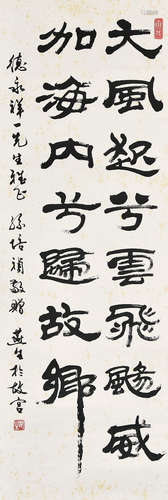 大風起兮雲飛颺威
加海内兮歸故鄉
德永祥一先生雅正 孫培禎敬贈 並書於故宮